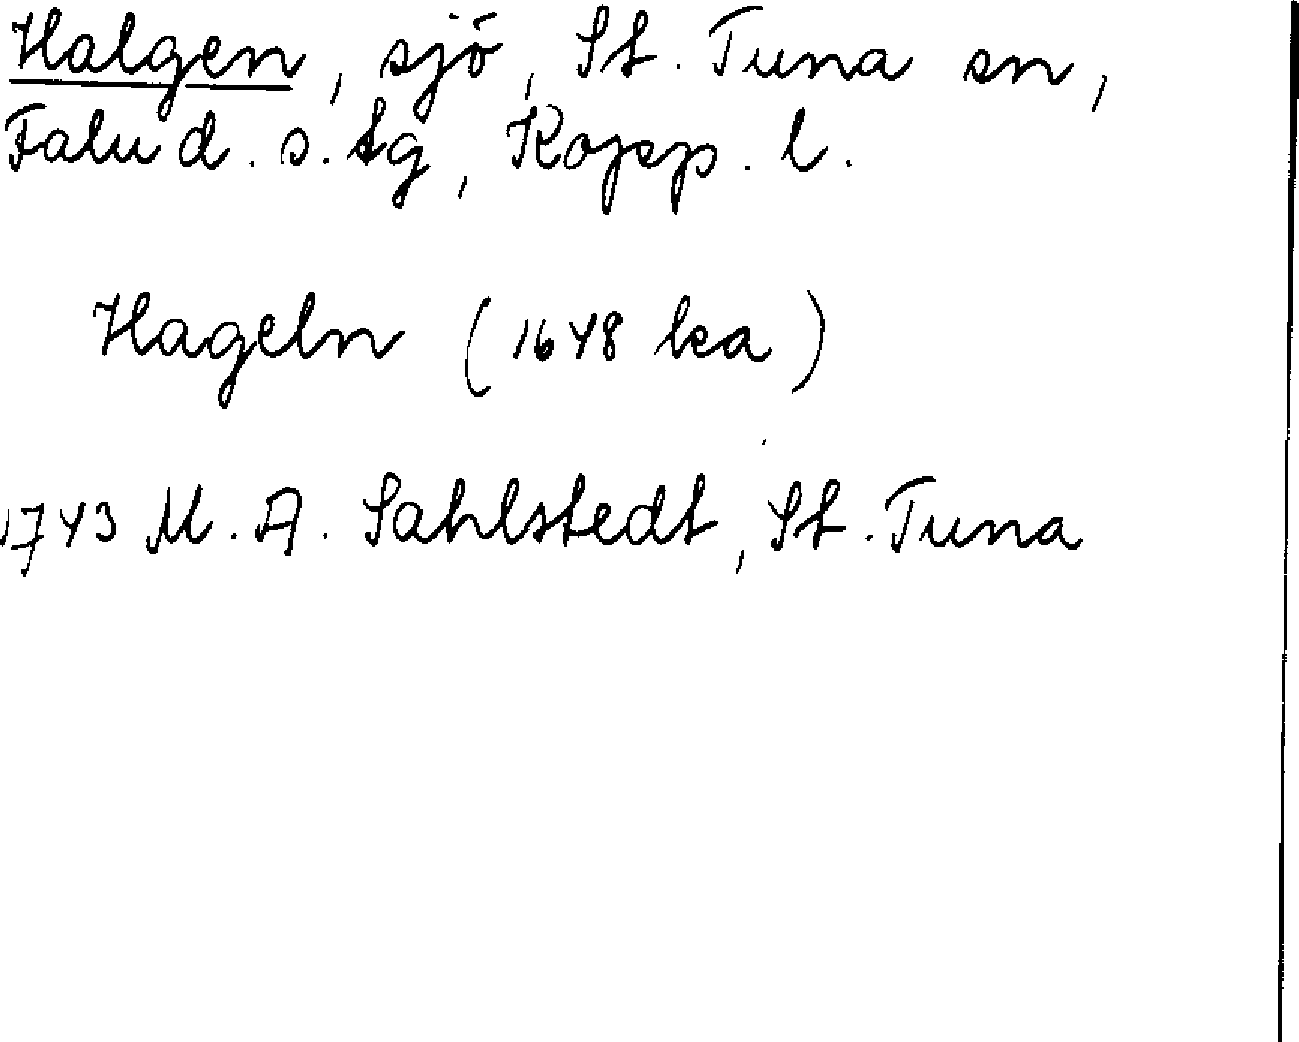 Halgen, sjö, St. Tuna sn,
Falu d. s. tg, Kopp. l.
Hageln (1648 ka)
1743 M. A. Sahlstedt, St. Tuna